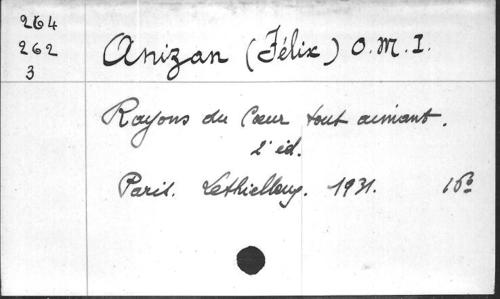 264
262
3
Anizan (Félix) O.M.I.
Rayons du Cœur tout aimant.
2e éd.
Paris. Lethielleux. 1931. 16º